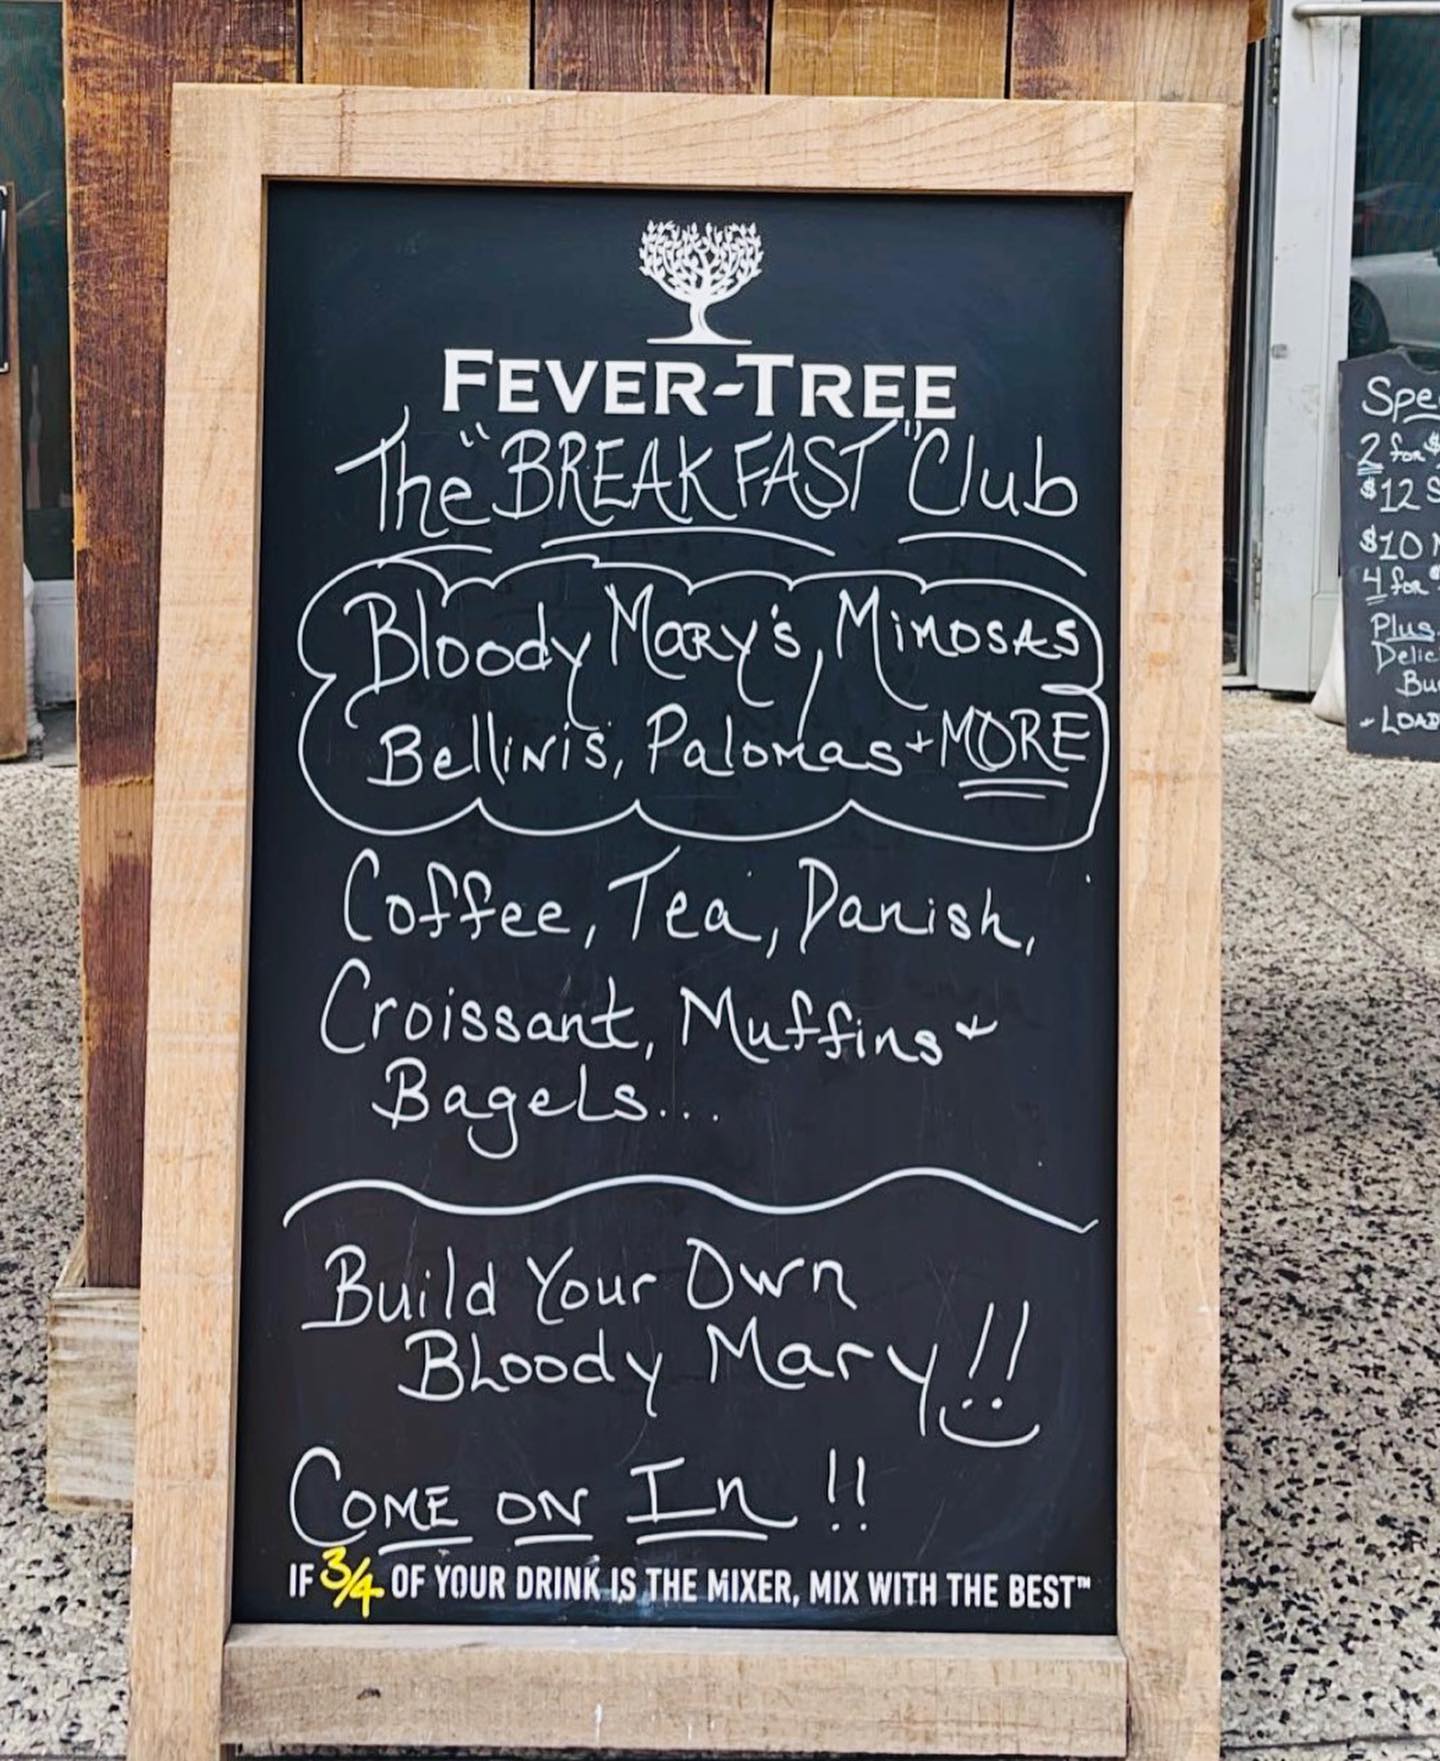 FEVER-TREE
The "BREAKFAST" Club
Bloody Mary's, Mimosas
Bellinis, Palomas + MORE
Coffee, Tea, Danish,
Croissant, Muffins +
Bagels...
Build Your Own
Bloody Mary!!
COME ON In !!
IF 3/4 OF YOUR DRINK IS THE MIXER, MIX WITH THE BEST™
2 for $
$12
$10
4 for
Plus